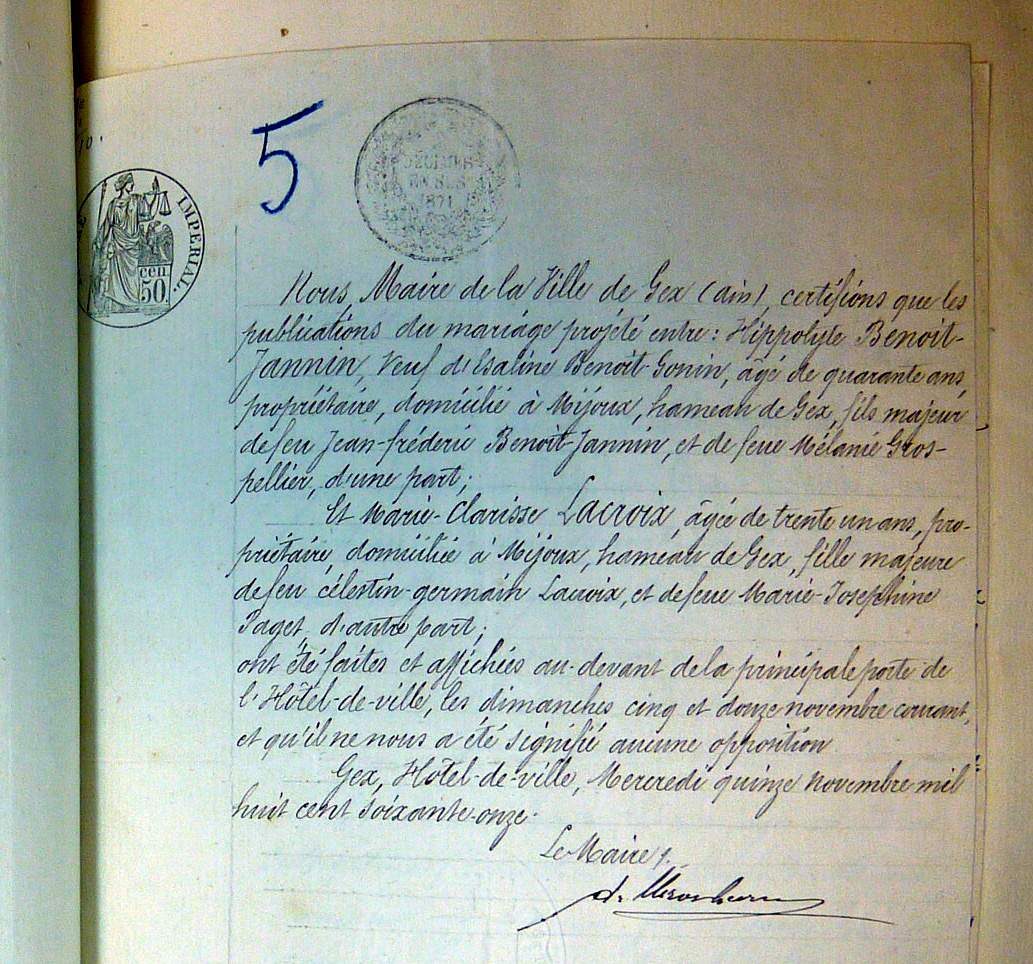 5
DÉCIMES
EN SUS
1871
IMPERIAL.
cen.
50.
Nous, Maire de la Ville de Gex (ain), certifions que les
publications du mariage projeté entre : Hippolyte Benoit-
Jannin, Veuf d'Esaline Benoit-Gonin, âgé de quarante ans,
propriétaire, domicilié à Mijoux, hameau de Gex, fils majeur
de feu Jean-fréderic Benoit-Jannin, et de feue Mélanie Gros-
pellier, d'une part ;
Et Marie-Clarisse Lacroix âgée de trente un ans, pro-
priétaire, domiciliée à Mijoux, hameau de Gex, fille majeure
de feu célestin-germain Lacroix, et de feue Marie-Josephine
Paget, d'autre part ;
ont été faites et affichées au-devant de la principale porte de
l'Hôtel-de-ville, les dimanches cinq et douze novembre courant,
et qu'il ne nous a été signifié aucune opposition.
Gex, Hôtel-de-ville, Mercredi quinze novembre mil
huit cent soixante-onze.
Le Maire,